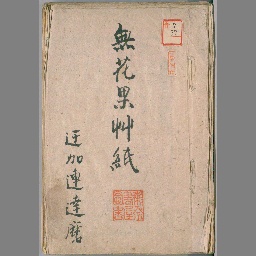 無花果艸紙
迂加連達磨